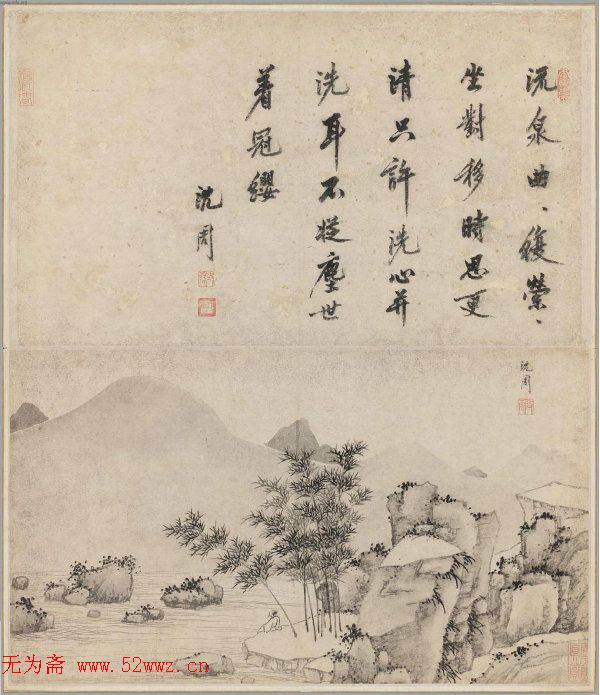 流泉曲、復縈、
坐對移時思更
清只許洗心并
洗耳不從塵世
着冠纓
沈周
沈周
无为斋 www.52wwz.cn